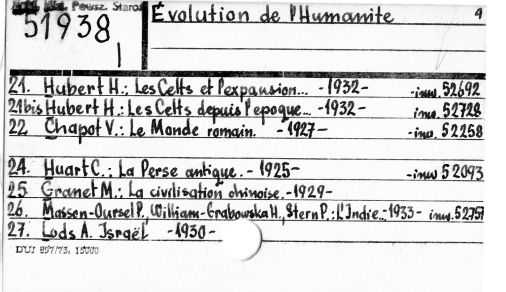 Powsz. Staroż
51938
I
Évolution de l'Humanite 4
21. Hubert H.: Les Celts et l'expansion... -1932- -inw. 52692
21bis Hubert H.: Les Celts depuis l'epoque... -1932- inw. 52728
22 Chapot V.: Le Monde romain. -1927- -inw. 52258
24. Huart C.: La Perse antique. - 1925- -inw 52093
25 Granet M.: La civilisation chinoise. -1929-
26. Masson-Oursel P., William-Grabowska H., Stern P.: L'Indie... -1933- inw. 52757
27. Lods A. Israël -1930-
DUJ 897/73. 15000